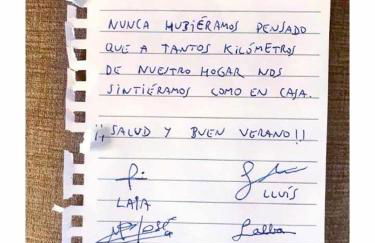 NUNCA HUBIÉRAMOS PENSADO
QUE A TANTOS KILÓMETROS
DE NUESTRO HOGAR NOS
SINTIÉRAMOS COMO EN CASA.
¡¡SALUD Y BUEN VERANO!!
LLUÍS
LAIA
Mª José